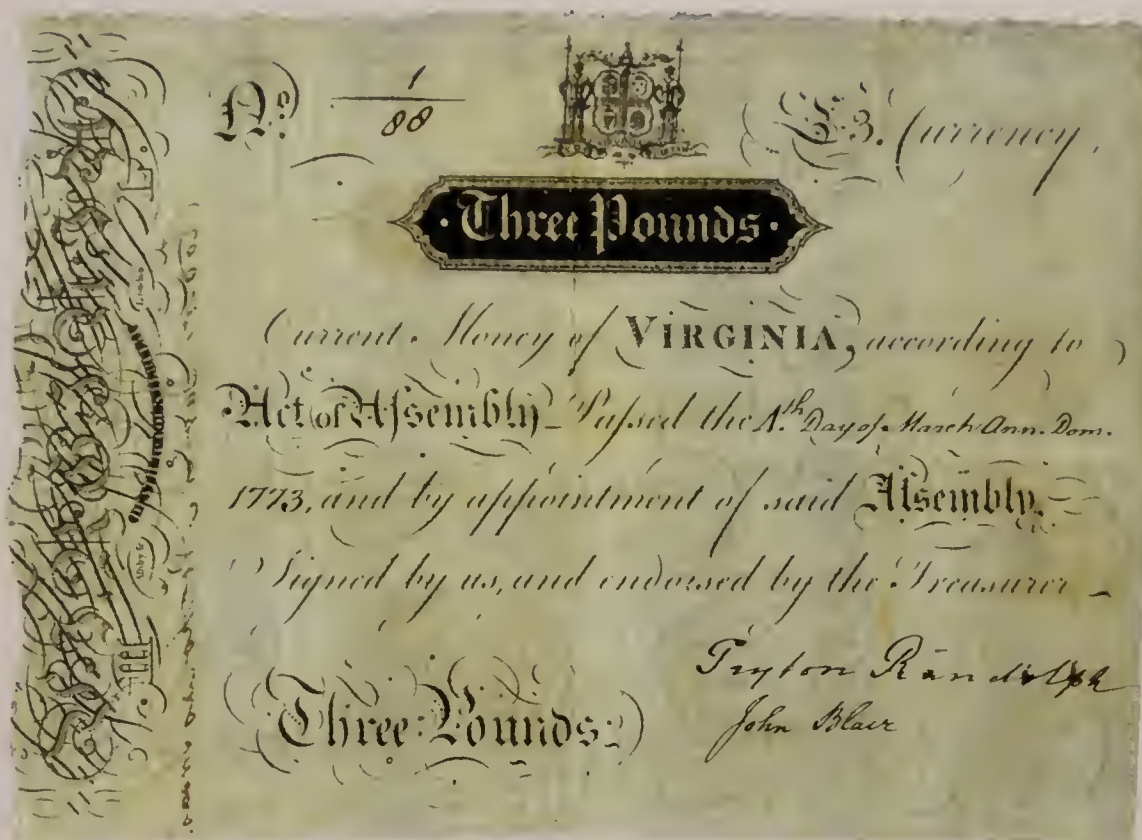 No. 1/88
£3. Currency.
·Three Pounds·
Current Money of VIRGINIA, according to
Act of Assembly Passed the 4th Day of March Ann. Dom.
1773, and by appointment of said Assembly,
Signed by us, and endorsed by the Treasurer
Three Pounds
Peyton Randolph
John Blair